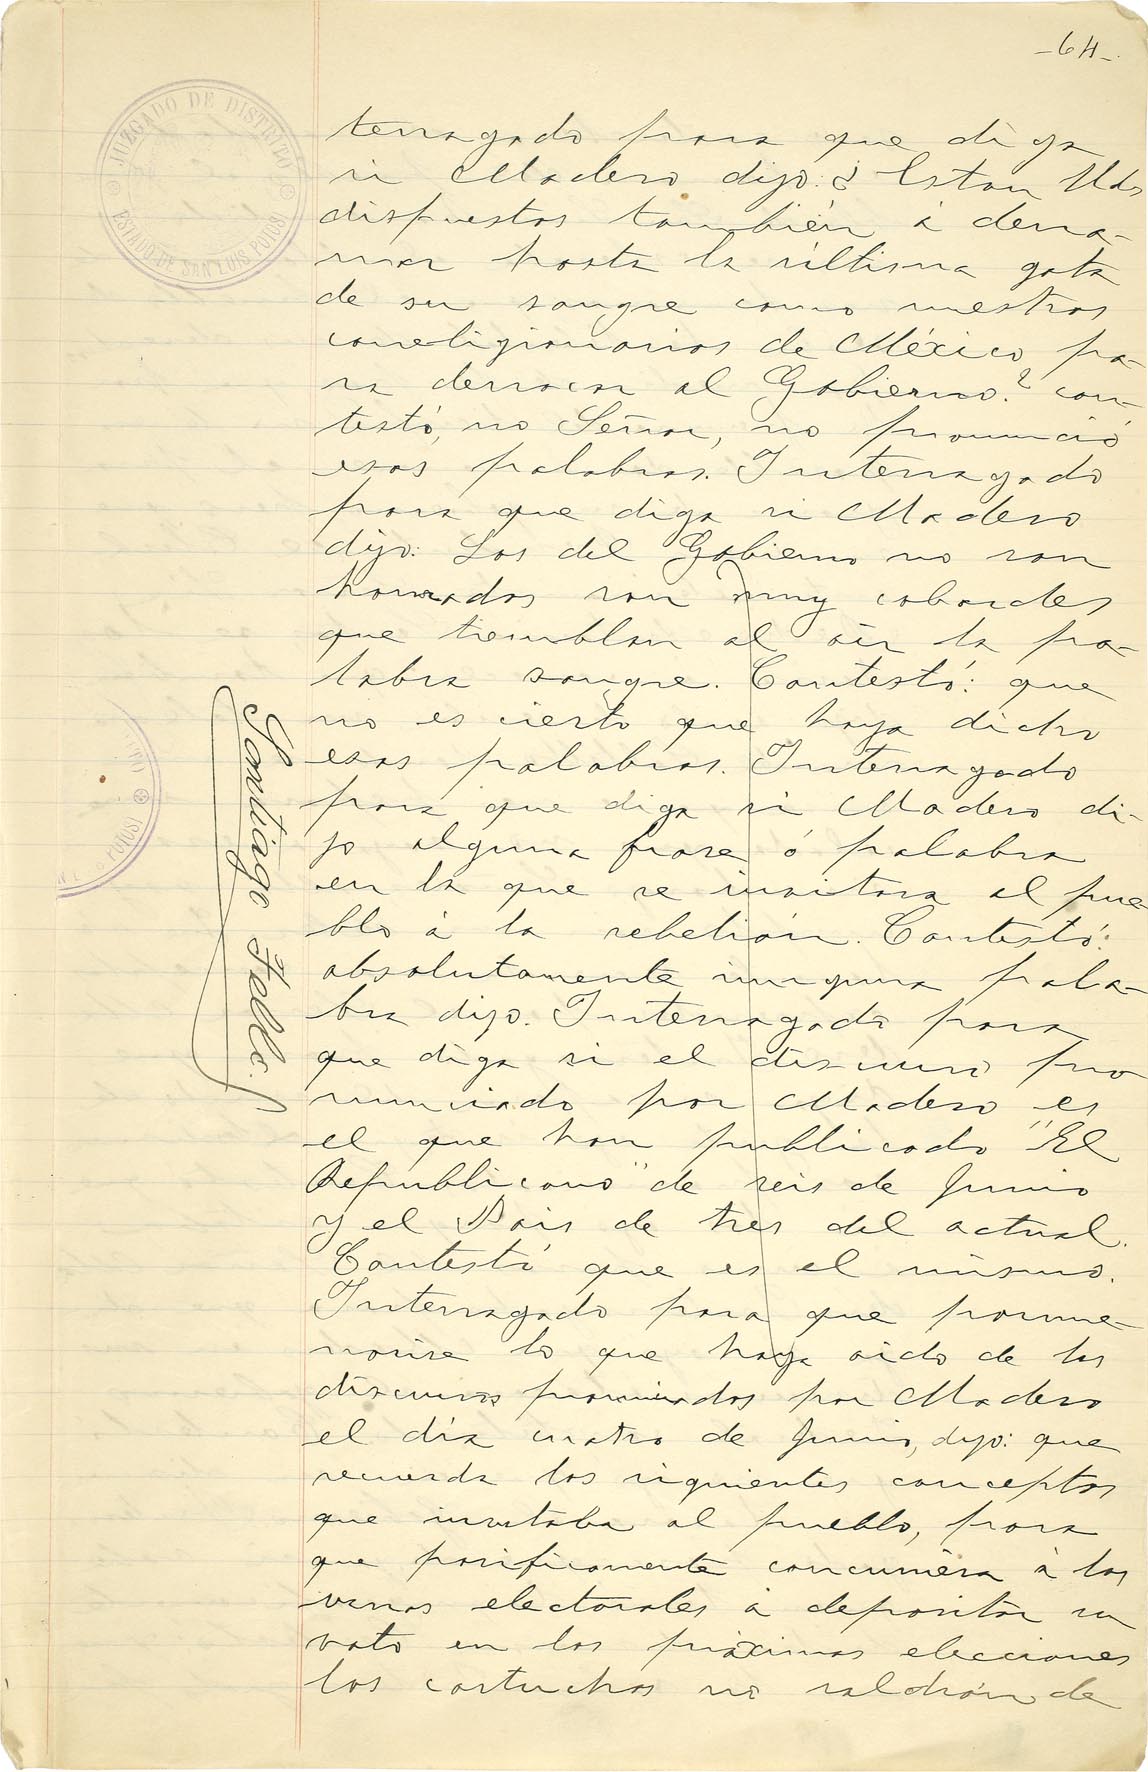 -64-
JUZGADO DE DISTRITO
ESTADO DE SAN LUIS POTOSI
terrogado para que diga
si Madero dijo: ¿Estan Uds
dispuestos también á derra-
mar hasta la última gota
de su sangre como nuestros
correligionarios de México pa-
ra derrocar al Gobierno? con-
testó, no Señor, no pronunció
esas palabras. Interrogado
para que diga si Madero
dijo: Los del Gobierno no son
honrados son muy cobardes
que tiemblan al oir la pa-
labra sangre. Contestó: que
no es cierto que haya dicho
esas palabras. Interrogado
para que diga si Madero di-
jo alguna frase ó palabra
en la que se incitara al pue-
blo á la rebelión. Contestó:
absolutamente ninguna pala-
bra dijo. Interrogado para
que diga si el discurso pro
nunciado por Madero es
el que han publicado "El
Republicano" de seis de Junio
y el Pais de tres del actual.
Contestó que es el mismo.
Interrogado para que porme-
norise lo que haya oido de los
discursos pronunciados por Madero
el día cuatro de Junio, dijo: que
recuerda los siguientes conceptos
que invitaba al pueblo, para
que pacificamente concurriera á las
urnas electorales á depositar su
voto en las próximas elecciones
los cartuchos no saldrán de
Santiago Tello.